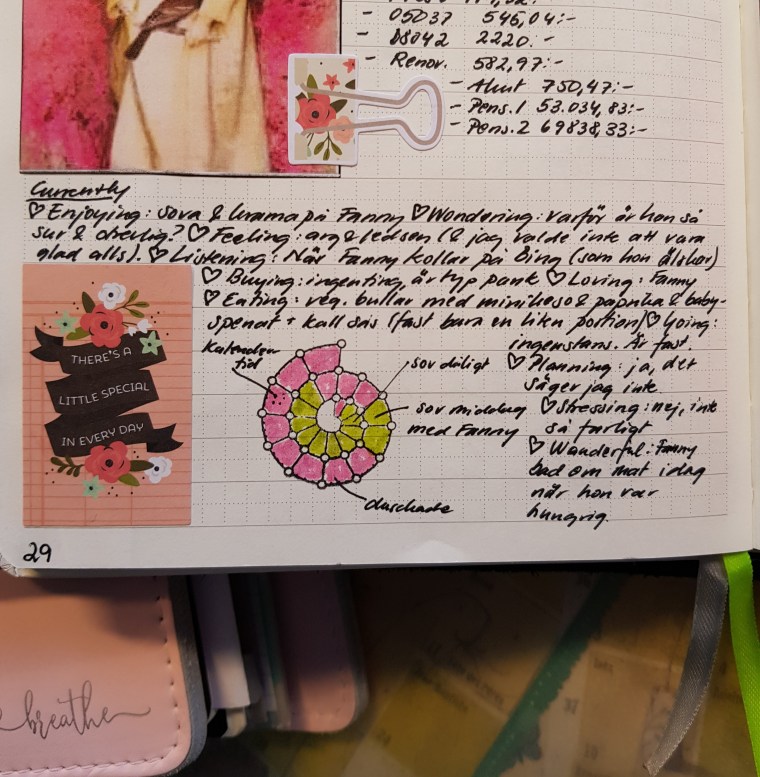 - 05037 546,04:-
- DS042 2220:-
- Renov. 582,97:-
- Akut 750,47:-
- Pens.1 53.034,83:-
- Pens.2 69838,33:-
Currently
♡ Enjoying: sova & krama på Fanny ♡ Wondering: varför är hon så
sur & otrevlig? ♡ Feeling: arg & ledsen (& jag valde inte att vara
glad alls). ♡ Listening: När Fanny kollar på Bing (som hon älskar)
♡ Buying: ingenting, är typ pank ♡ Loving: Fanny
♡ Eating: veg. bullar med minikeso & paprika & baby-
spenat + kall sås (fast bara en liten portion) ♡ Going:
ingenstans. Är fast.
♡ Planning: ja, det
säger jag inte
♡ Stressing: nej, inte
så farligt
♡ Wonderful: Fanny
bad om mat idag
när hon var
hungrig.
THERE'S A
LITTLE SPECIAL
IN EVERY DAY
Kalender
tid
sov dåligt
sov middag
med Fanny
duschade
29
breathe